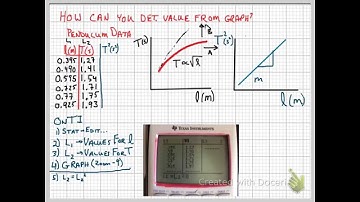 HOW CAN YOU DET. VALUE FROM GRAPH?
PENDULUM DATA
L₁ L₂
l(m) T(s) T²(s²)
0.395 1.27
0.490 1.41
0.575 1.54
0.725 1.71
0.77 1.75
0.925 1.93
T(s)
B
A
T∝√l
l(m)
T²(s²)
m
l(m)
ON TI
1) STAT→EDIT...
2) L₁→VALUES FOR l
3) L₂→VALUES FOR T
4) GRAPH (ZOOM-9)
5) L₃=L₂²
TEXAS INSTRUMENTS
Created with Doceri